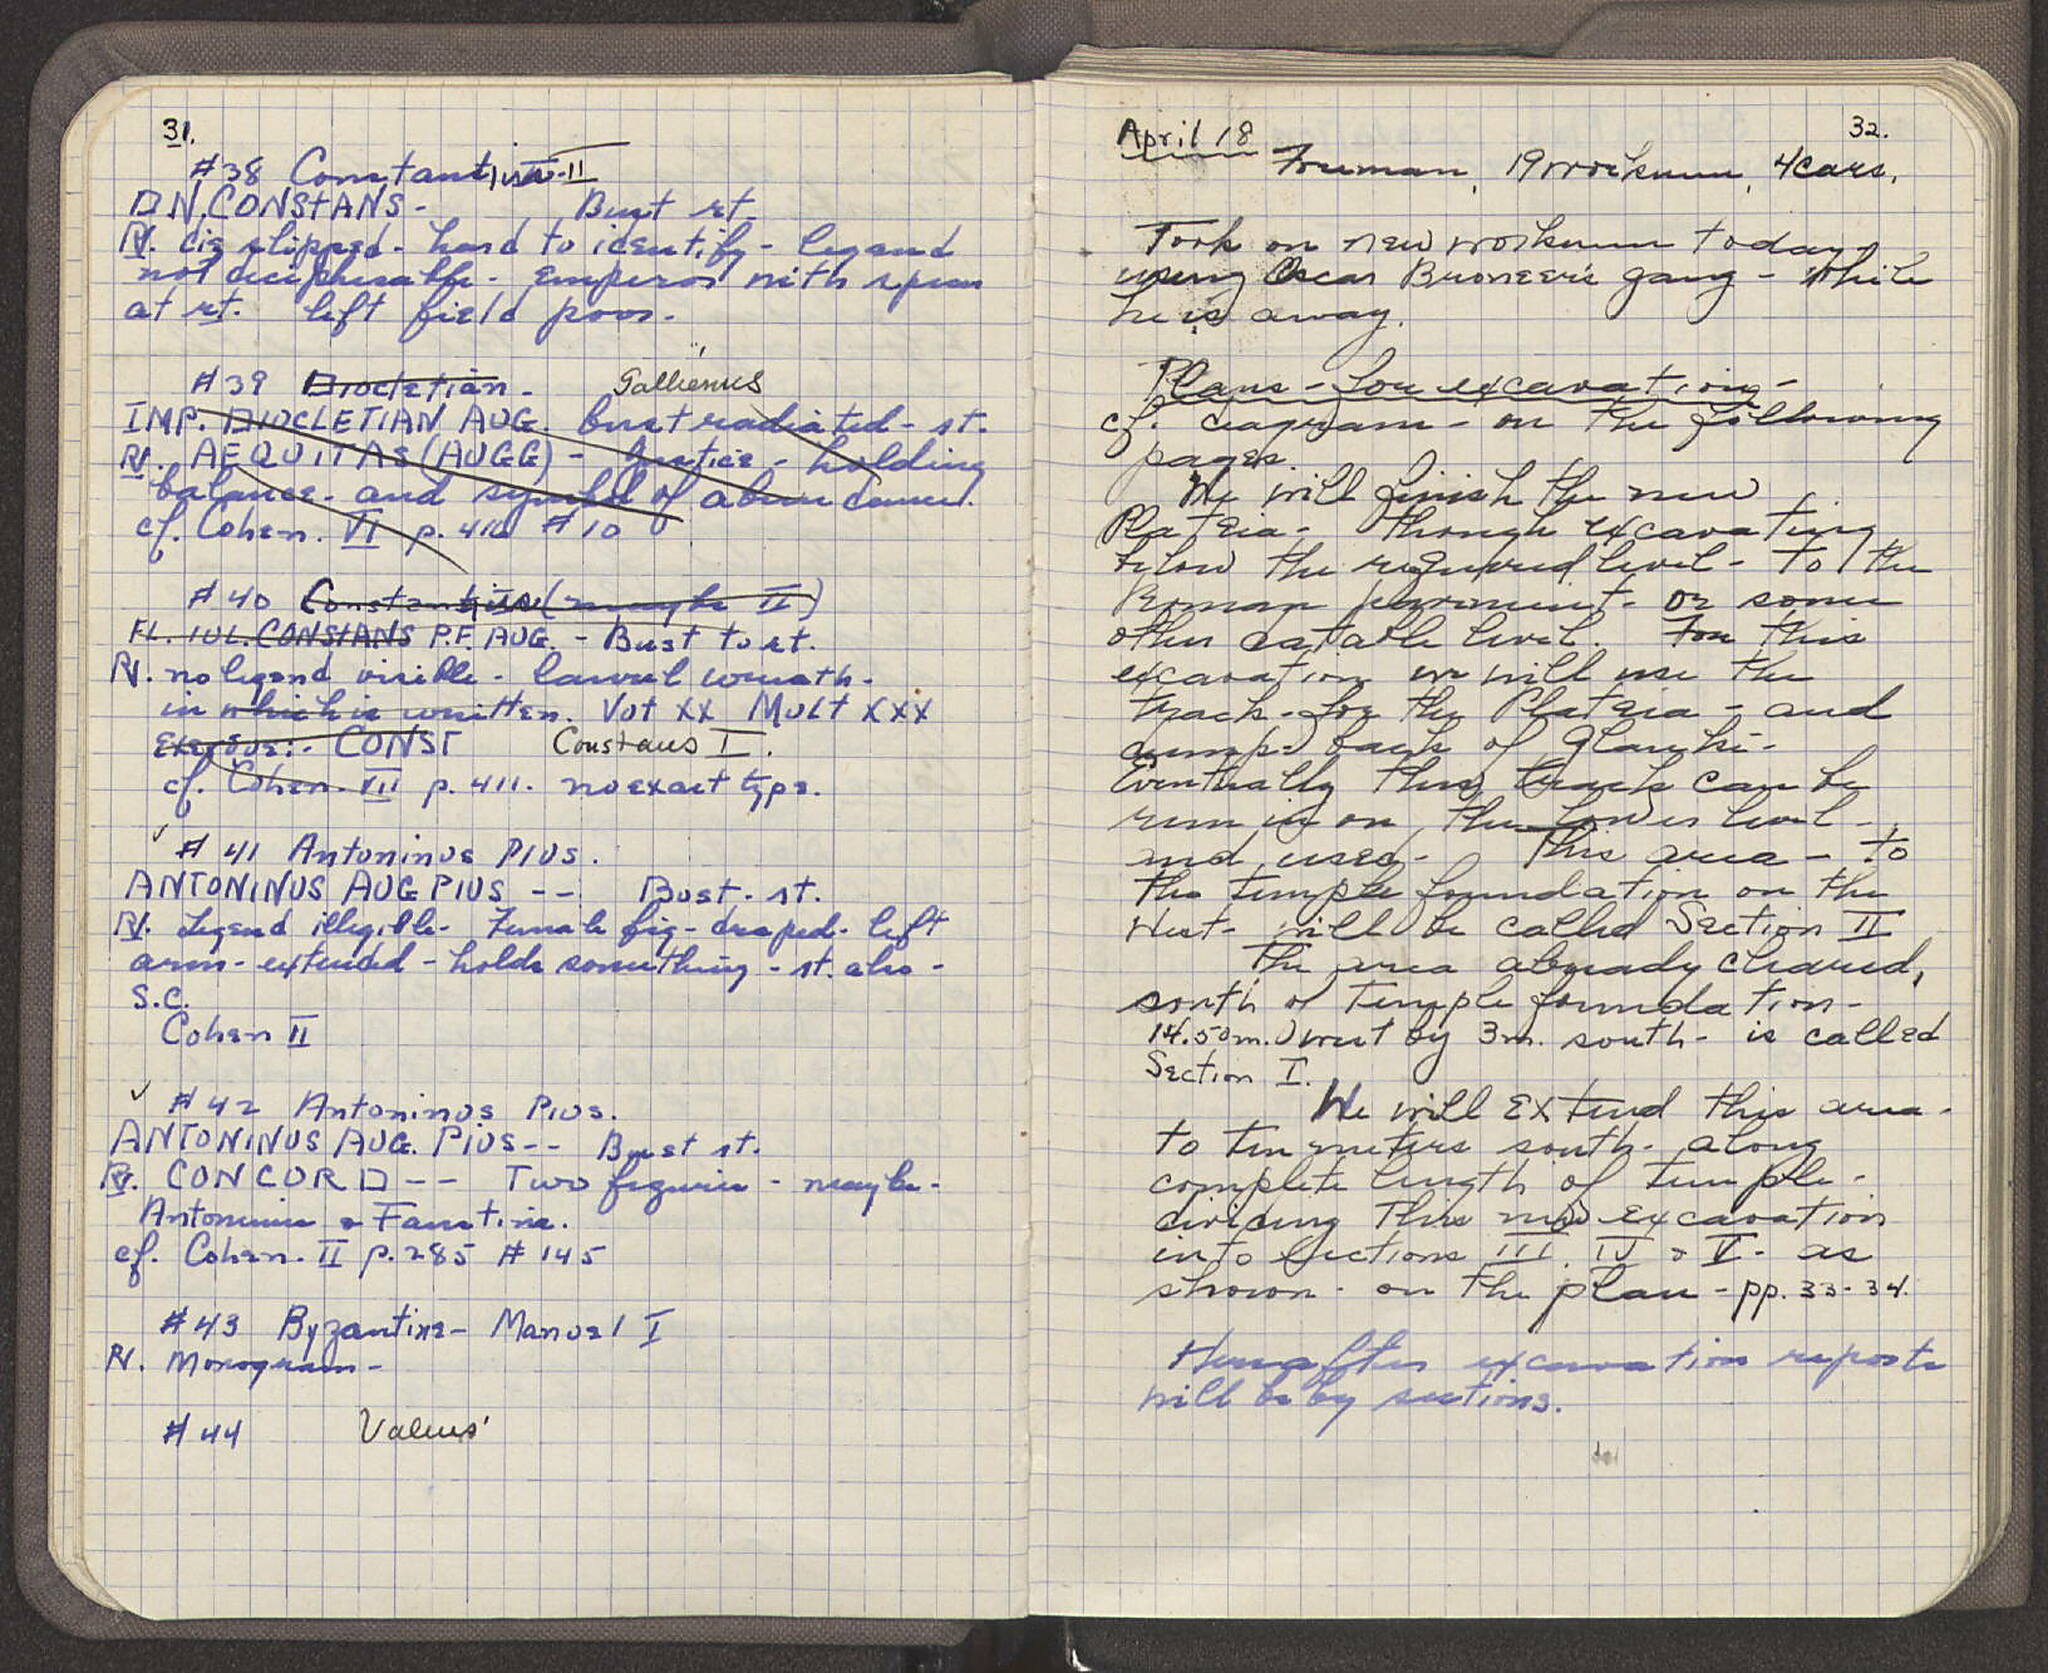 31.
#38 Constantius II
D N. CONSTANS - Bust rt.
RV. die slipped - hard to identify - legend
not decipherable - Emperor with spear
at rt. left field poor.
#39 Diocletian - Gallienus
IMP. DIOCLETIAN AUG. bust radiated - rt.
RV. AEQUITAS (AUGG) - Justice - holding
balance - and symbol of abundance.
cf. Cohen. VI p. 410 #10
#40 Constantius (maybe II)
FL. IUL. CONSTANS P.F. AUG. - Bust to rt.
RV. no legend visible - laurel wreath -
in which is written. Vot XX Mult XXX
Exergue:- CONST Constans I.
cf. Cohen VII p. 411. no exact type.
✓ #41 Antoninus Pius.
ANTONINUS AUG PIUS -- Bust - rt.
RV. Legend illegible - Female fig - draped - left
arm - extended - holds something - rt. also -
S.C.
Cohen II
✓ #42 Antoninus Pius.
ANTONINUS AUG. PIUS -- Bust rt.
RV. CONCORD -- Two figures - maybe -
Antoninus & Faustina.
cf. Cohen. II p. 285 #145
#43 Byzantine - Manuel I
RV. Monogram -
#44 Valens
32.
April 18
Foreman, 19 workmen, 4 cars.
Took on new workmen today
using Oscar Broneer's gang - while
he is away.
Plans - for excavation -
cf. diagram - on the following
pages.
We will finish the new
Plateia - though excavating
below the required level - to the
Roman pavement - or some
other datable level. For this
excavation we will use the
track - for the Plateia - and
dump - back of Glauke -
Eventually this track can be
run in on the lower level -
and used - This area - to
the temple foundation on the
West - will be called Section II
The area already cleared,
south of temple foundation -
14.50m. west by 3m. south - is called
Section I.
We will extend this area -
to ten meters south - along
complete length of temple -
dividing this new excavation
into sections III, IV & V - as
shown - on the plan - pp. 33-34.
Hereafter excavation reports
will be by sections.